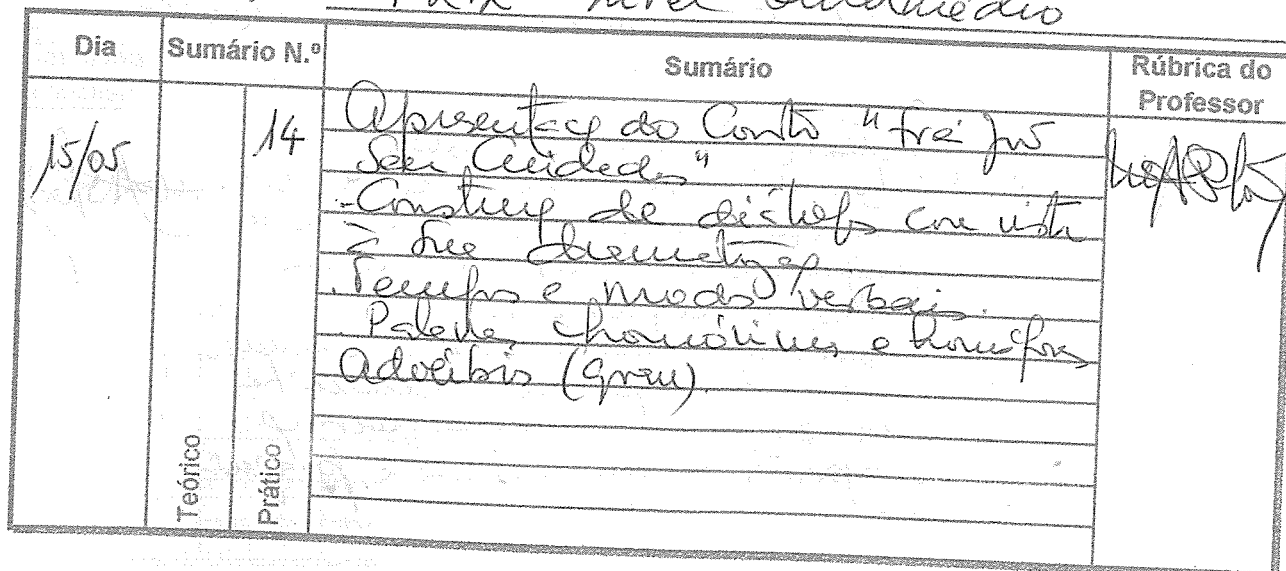 nível
Dia
Sumário N.º
Sumário
Rúbrica do
Professor
15/05
14
Apresentação do Conto "Frei João
Sem Cuidados"
- Construção de diálogos com vista
à sua dramatização
. Tempos e modos verbais.
. Palavras homónimas e homófonas
Advérbios (grau).
Teórico
Prático